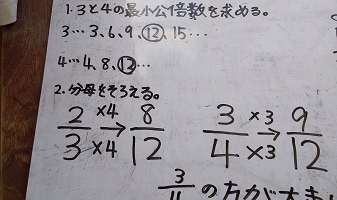 1.3と4の最小公倍数を求める。
3…3、6、9、⑫、15…
4…4、8、⑫…
2.分母をそろえる。
2/3 ×4 → ×4 8/12 3/4 ×3 → ×3 9/12
3/4 の方が大き